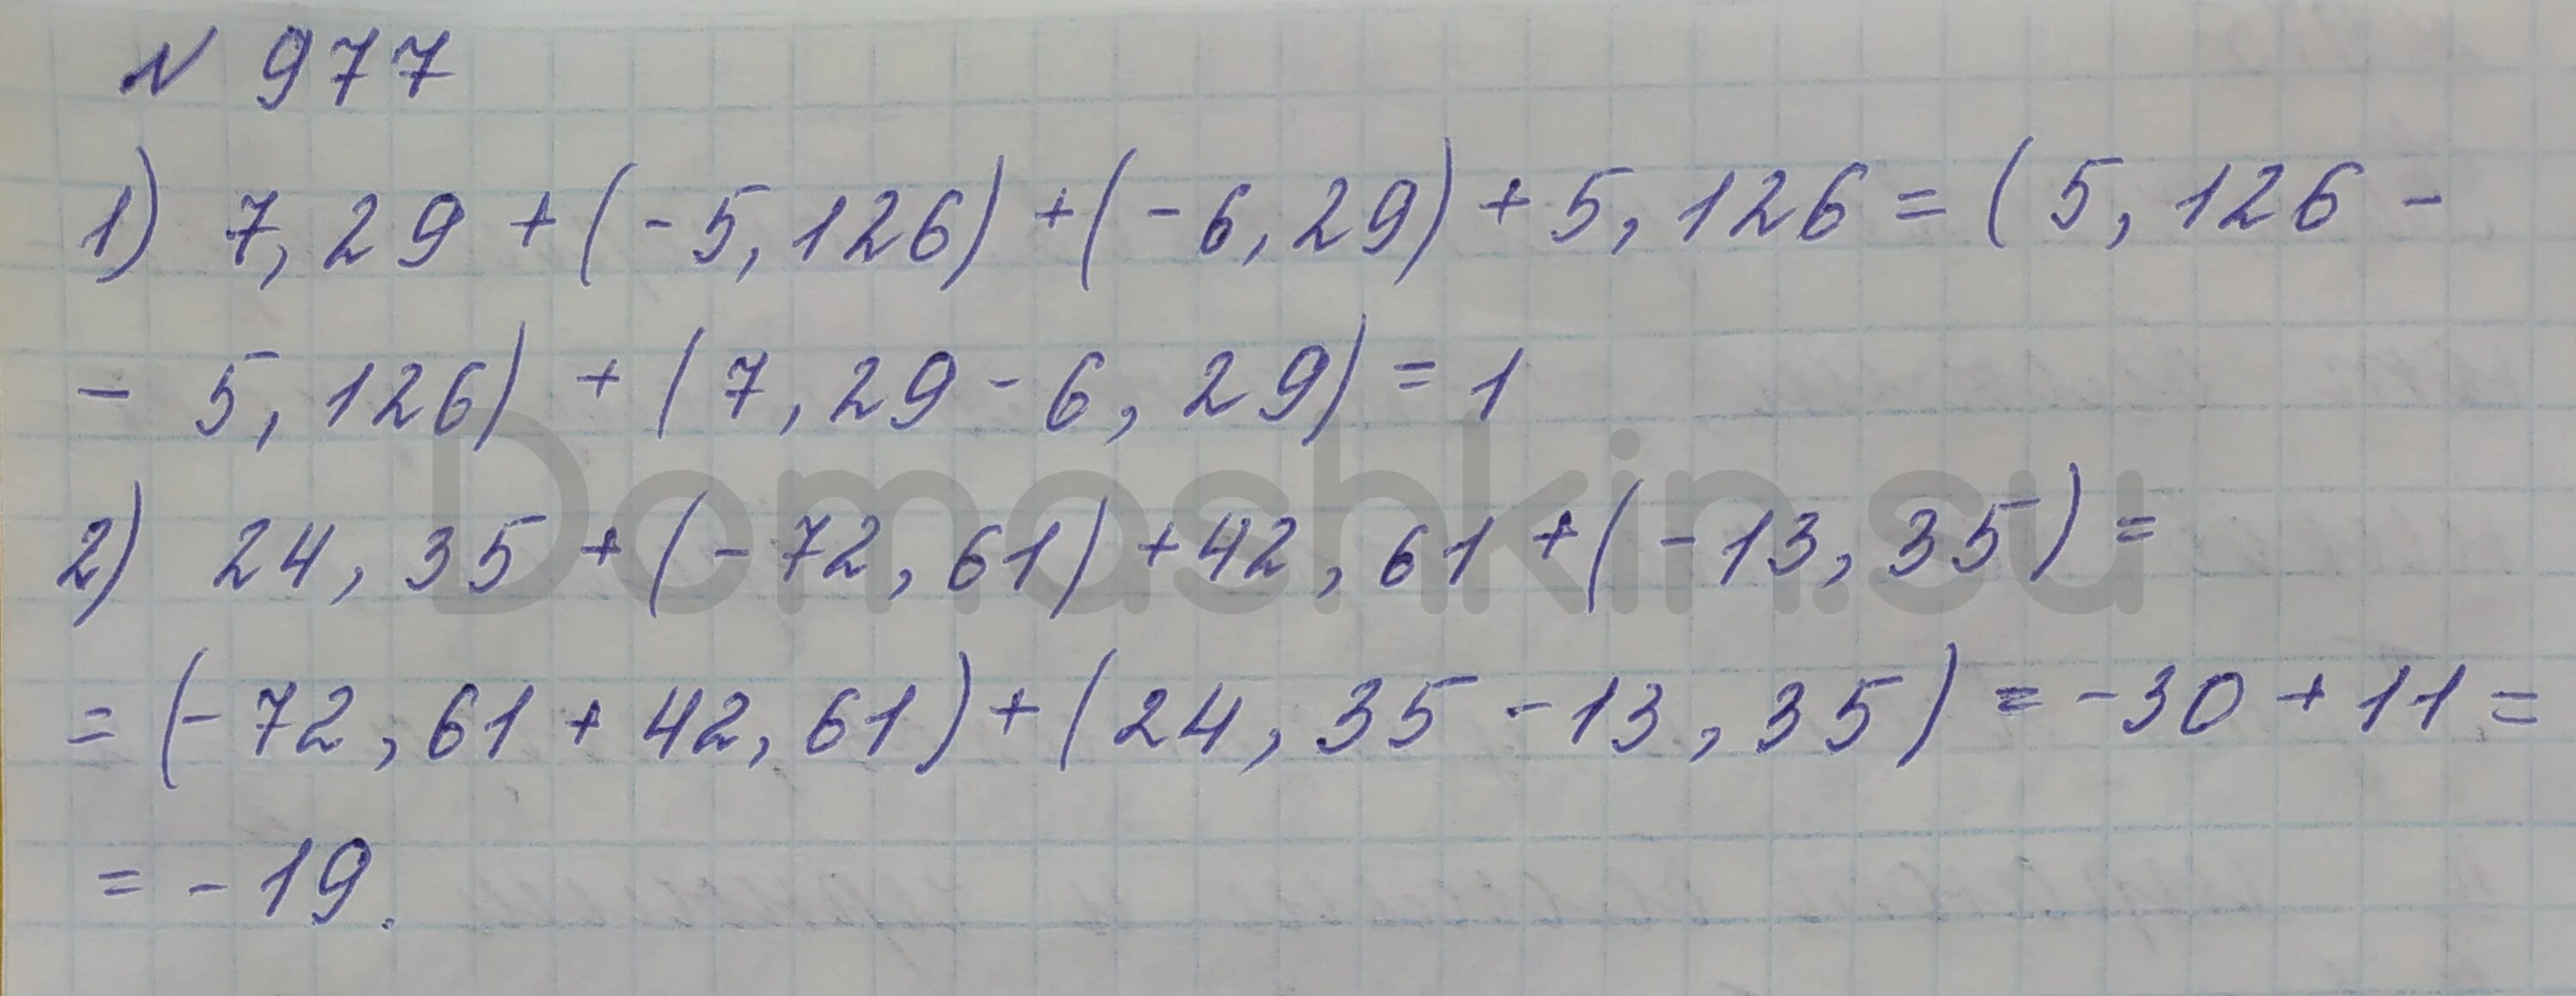 № 977
1) 7,29 + (-5,126) + (-6,29) + 5,126 = (5,126 -
- 5,126) + (7,29 - 6,29) = 1
2) 24,35 + (-72,61) + 42,61 + (-13,35) =
= (-72,61 + 42,61) + (24,35 - 13,35) = -30 + 11 =
= -19.
Domashkin.su